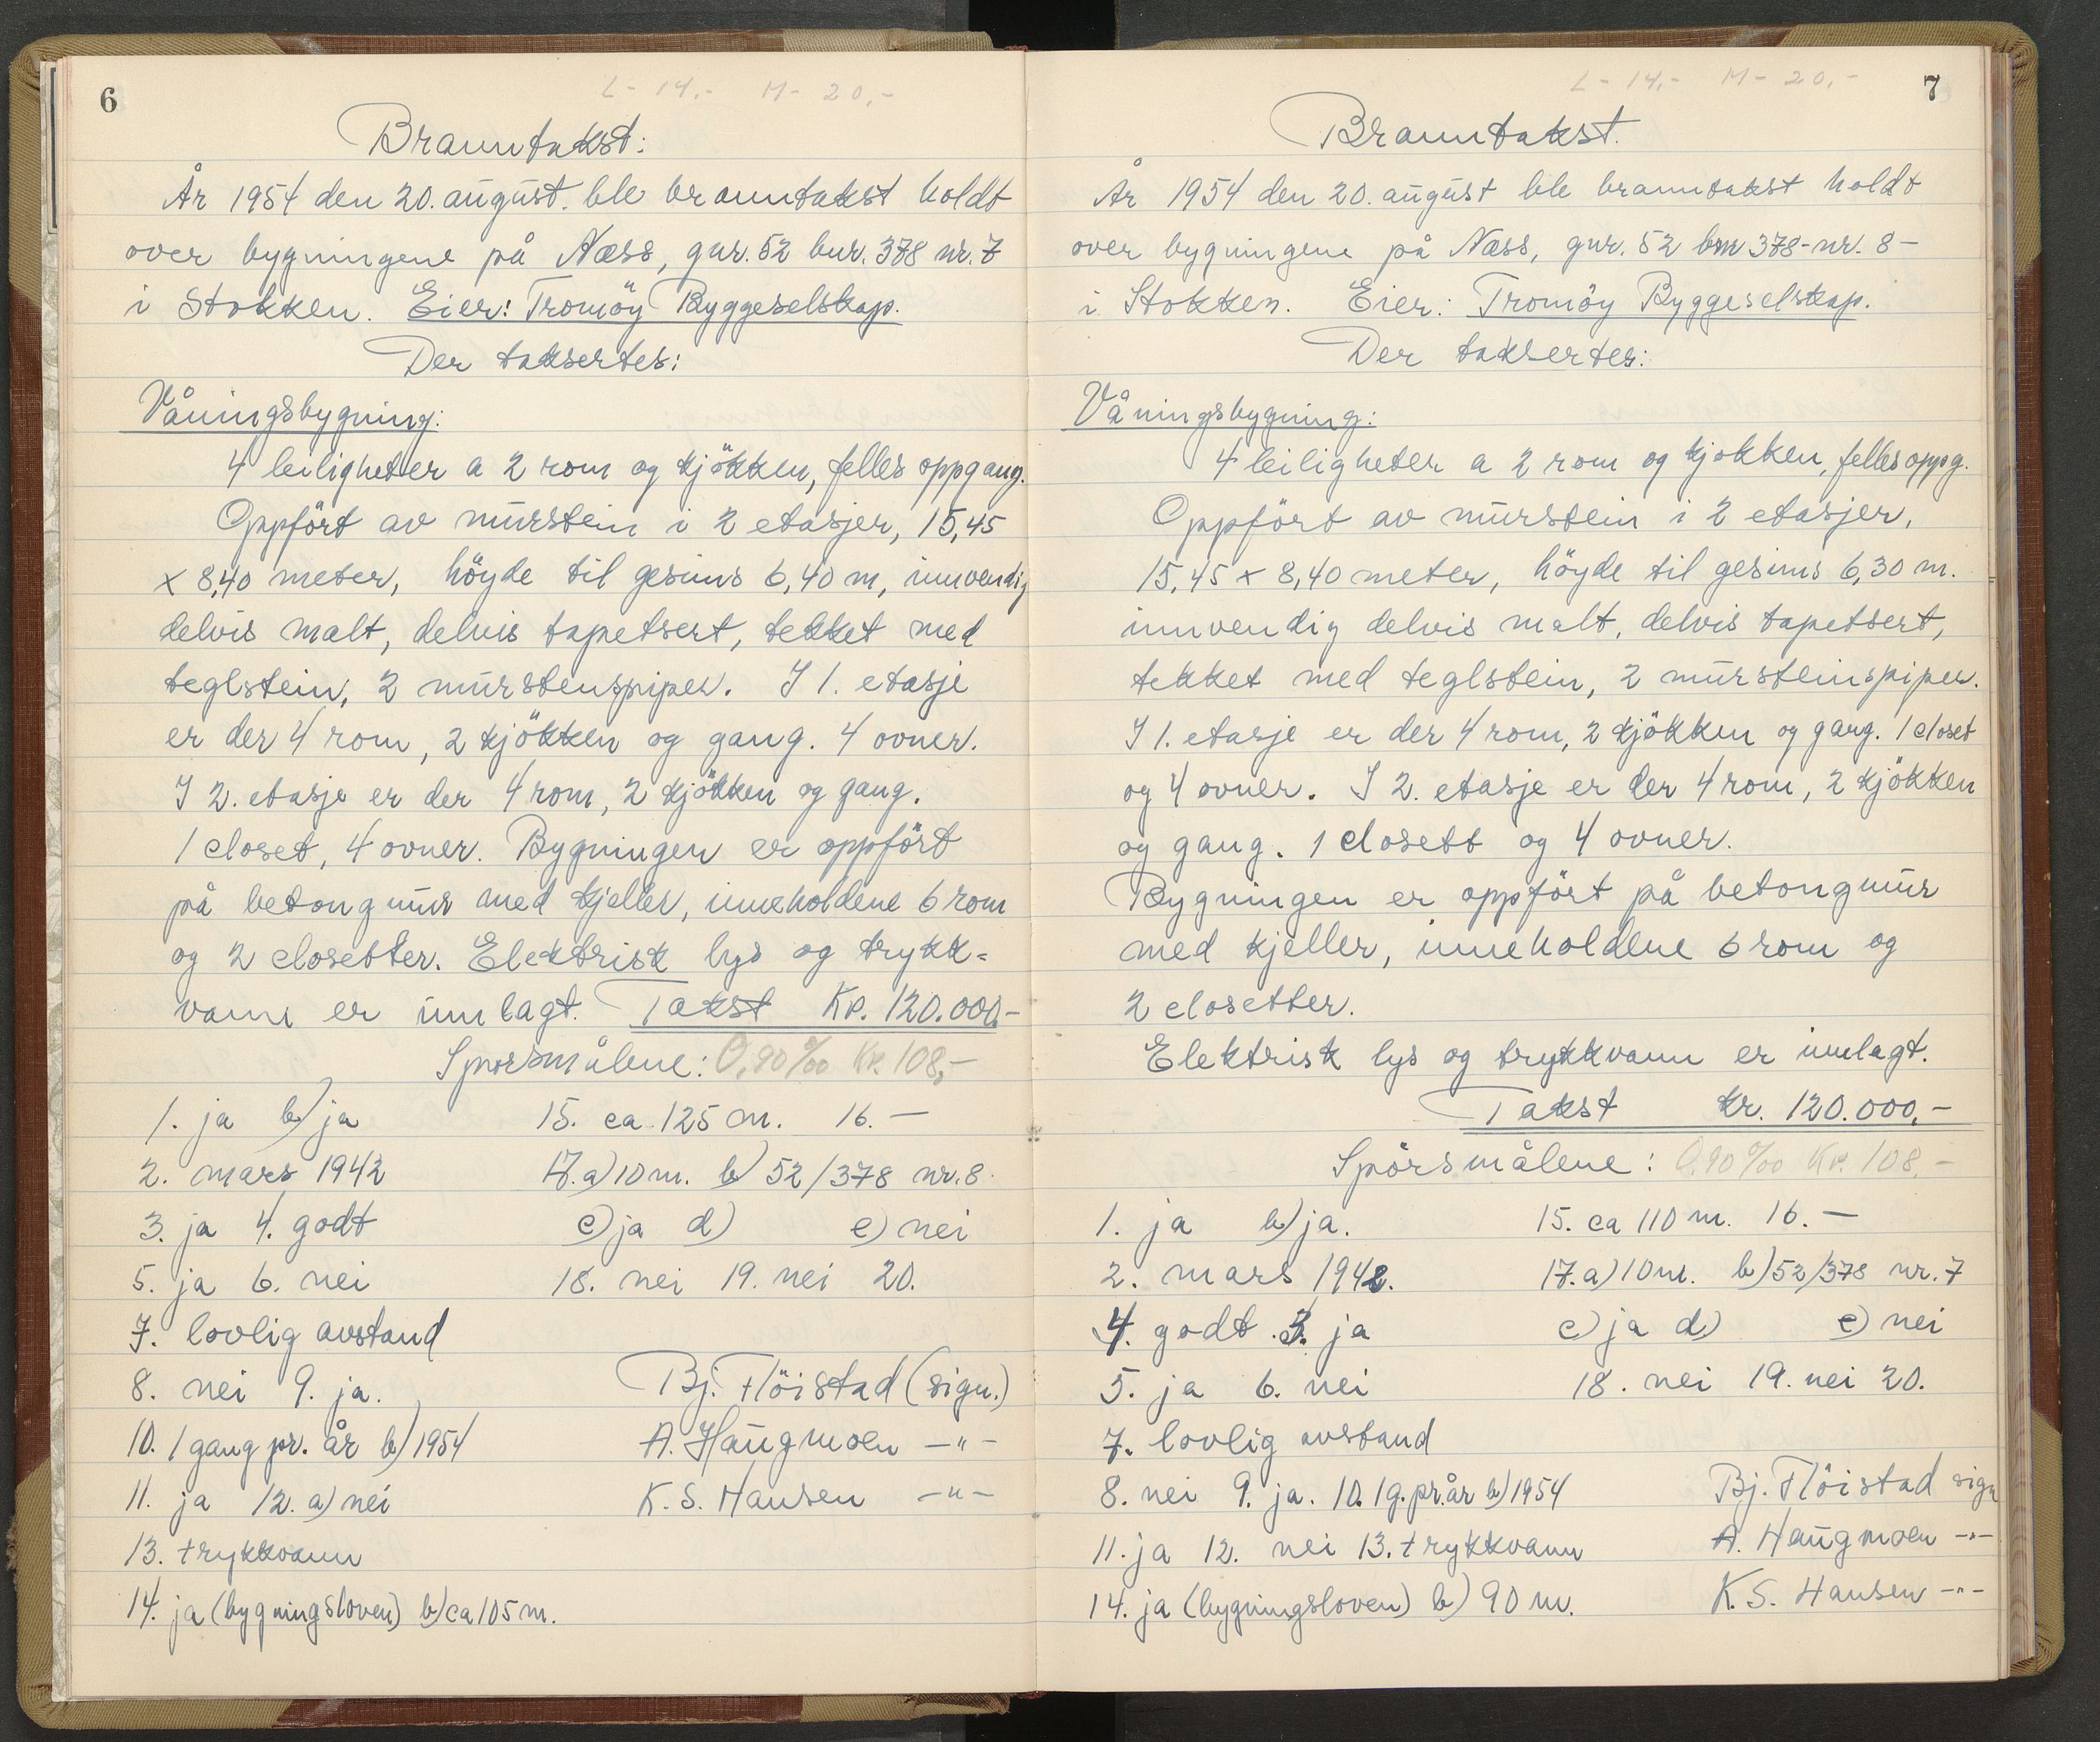 6
L - 14.- M - 20,-
Branntakst:
År 1954 den 20. august. ble branntakst holdt
over bygningene på Næss, gnr. 52 bnr. 378 nr. 7
i Stokken. Eier: Tromöy Byggeselskap.
Der taksertes:
Våningsbygning:
4 leiligheter a 2 rom og kjökken, felles oppgang.
Oppfört av murstein i 2 etasjer, 15,45
x 8,40 meter, höyde til gesims 6,40 m, innvendig
delvis malt, delvis tapetsert, tekket med
teglstein, 2 murstenspiper. I 1. etasje
er der 4 rom, 2 kjökken og gang. 4 ovner.
I 2. etasje er der 4 rom, 2 kjökken og gang.
1 closet, 4 ovner. Bygningen er oppfört
på betongmur med kjeller, inneholdene 6 rom
og 2 closetter. Elektrisk lys og trykk=
vann er innlagt. Takst Kr. 120.000,-
Spørsmålene: 0,90 ‰ Kr. 108,-
1. ja b) ja
2. mars 1942
3. ja 4. godt
5. ja 6. nei
7. lovlig avstand
8. nei 9. ja.
10. 1 gang pr. år b) 1954
11. ja 12. a) nei
13. trykkvann
14. ja (bygningsloven) b) ca 105 m.
15. ca. 125 m. 16. —
17. a) 10 m. b) 52/378 nr. 8.
c) ja d) e) nei
18. nei 19. nei 20.
Bj. Flöistad (sign.)
A. Haugmoen -"-
K. S. Hansen -"-
7
L - 14,- M - 20,-
Branntakst.
År 1954 den 20. august ble branntakst holdt
over bygningene på Næss, gnr. 52 bnr 378-nr. 8-
i Stokken. Eier: Tromöy Byggeselskap.
Der taksertes:
Våningsbygning:
4 leiligheter a 2 rom og kjokken, felles oppg.
Oppfört av murstein i 2 etasjer,
15,45 x 8,40 meter, höyde til gesims 6,30 m.
innvendig delvis malt, delvis tapetsert,
tekket med teglstein, 2 mursteinspiper.
I 1. etasje er der 4 rom, 2 kjökken og gang. 1 closet
og 4 ovner. I 2. etasje er der 4 rom, 2 kjökken
og gang. 1 closett og 4 ovner.
Bygningen er oppfört på betongmur
med kjeller, inneholdene 6 rom og
2 closetter.
Elektrisk lys og trykkvann er innlagt.
Takst kr. 120.000,-
Spörsmålene: 0,90 ‰ Kr. 108,-
1. ja b) ja.
2. mars 1942.
4. godt. 3. ja
5. ja 6. nei
7. lovlig avstand
8. nei 9. ja. 10. 1 g. pr. år b) 1954
11. ja 12. nei 13. trykkvann
14. ja (bygningsloven) b) 90 m.
15. ca 110 m. 16. —
17. a) 10 m. b) 52/378 nr. 7
c) ja d) e) nei
18. nei 19. nei 20.
Bj. Flöistad sign
A. Haugmoen -"-
K. S. Hansen -"-